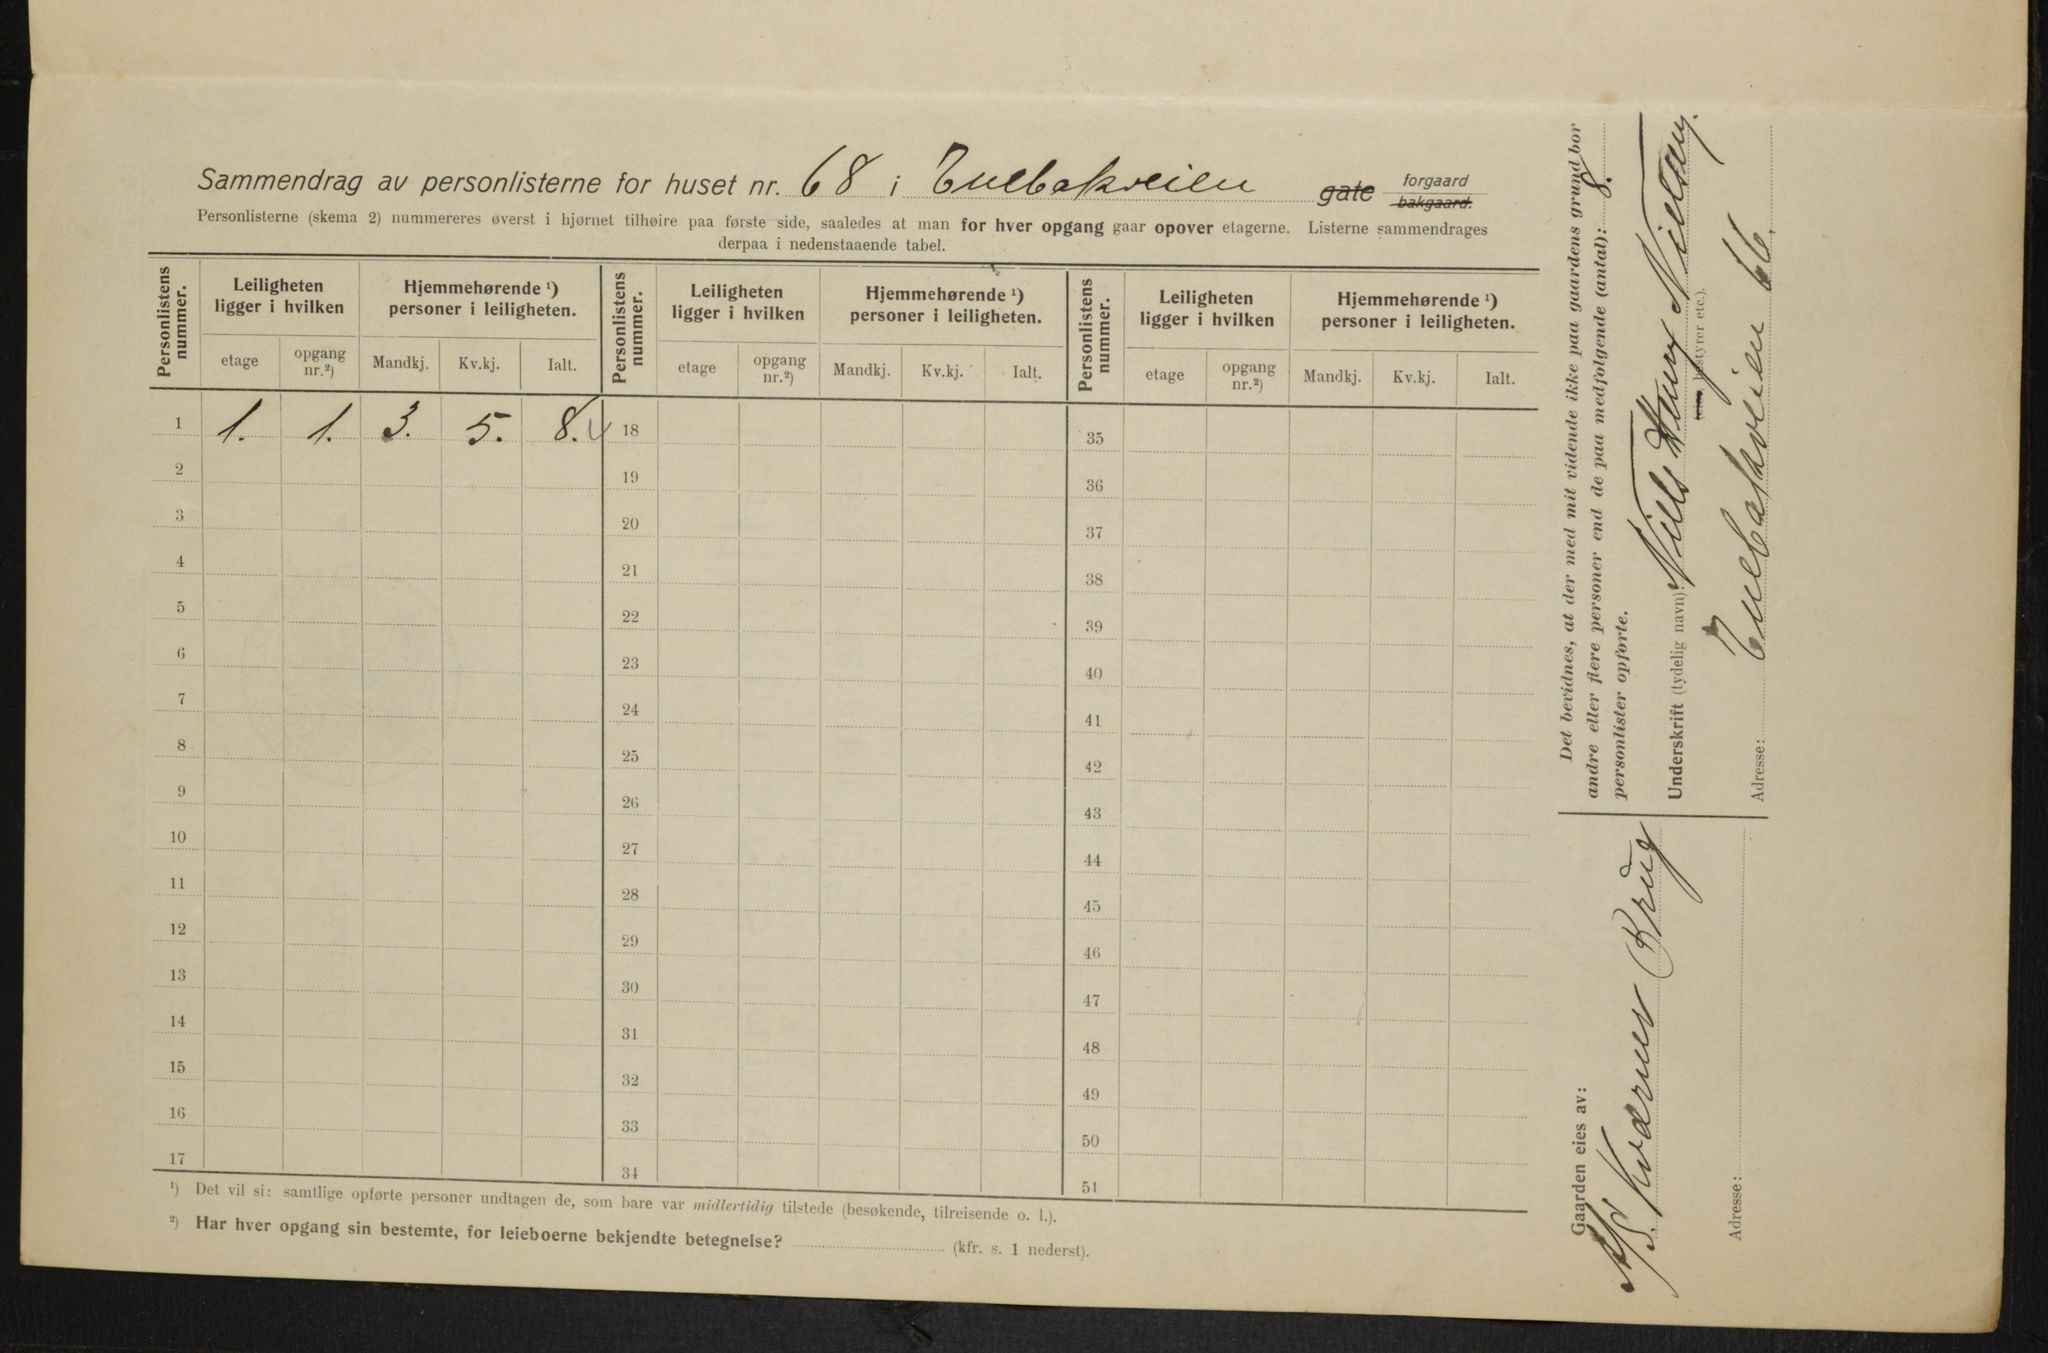 Sammendrag av personlisterne for huset nr. 68 i Enebakveien gate forgaard
bakgaard.
Personlisterne (skema 2) nummereres øverst i hjørnet tilhøire paa første side, saaledes at man for hver opgang gaar opover etagerne. Listerne sammendrages
derpaa i nedenstaaende tabel.
Personlistens nummer. Leiligheten ligger i hvilken Hjemmehørende ¹) personer i leiligheten. Personlistens nummer. Leiligheten ligger i hvilken Hjemmehørende ¹) personer i leiligheten. Personlistens nummer. Leiligheten ligger i hvilken Hjemmehørende ¹) personer i leiligheten.
etage opgang nr.²) Mandkj. Kv.kj. Ialt. etage opgang nr.²) Mandkj. Kv.kj. Ialt. etage opgang nr.²) Mandkj. Kv.kj. Ialt.
1 1. 1. 3. 5. 8. 18 35
2 19 36
3 20 37
4 21 38
5 22 39
6 23 40
7 24 41
8 25 42
9 26 43
10 27 44
11 28 45
12 29 46
13 30 47
14 31 48
15 32 49
16 33 50
17 34 51
¹) Det vil si: samtlige opførte personer undtagen de, som bare var midlertidig tilstede (besøkende, tilreisende o. l.).
²) Har hver opgang sin bestemte, for leieboerne bekjendte betegnelse? (kfr. s. 1 nederst).
Det bevidnes, at der med mit vidende ikke paa gaardens grund bor
andre eller flere personer end de paa medfølgende (antal): 8.
personlister opførte.
Underskrift (tydelig navn): Nills Henry Nillsen
bestyrer etc.).
Adresse: Enebakveien 66.
Gaarden eies av:
A/S. Kværner Brug
Adresse: